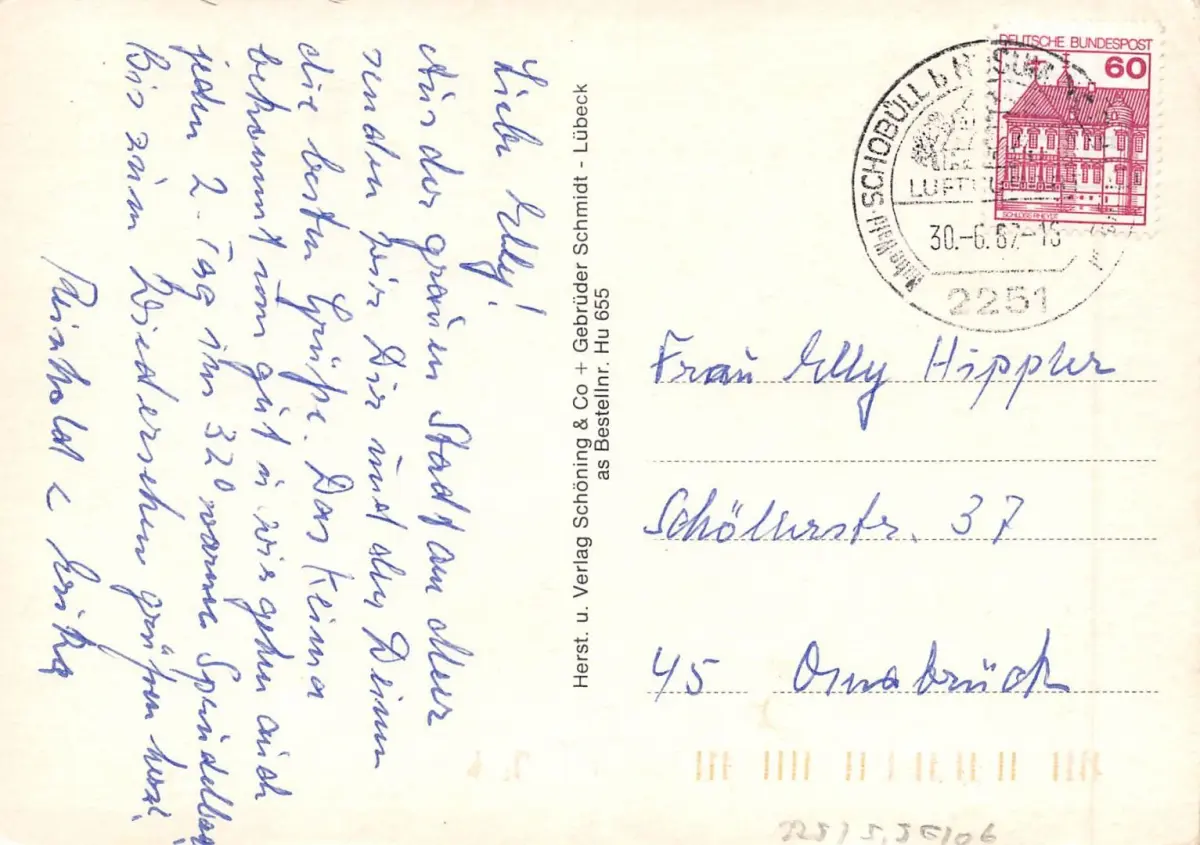 Liebe Elly!
Aus der grauen Stadt am Meer
senden wir Dir und den Deinen
die besten Grüße. Das Klima
bekommt uns gut u. wir gehen auch
jeden 2. Tag ins 32° warme Sprudelbad
Bis zum Wiedersehen grüßen herzl.
Reinhold u. Erika
Herst. u. Verlag Schöning & Co + Gebrüder Schmidt - Lübeck
as Bestellnr. Hu 655
DEUTSCHE BUNDESPOST
60
SCHLOSS RHEYDT
SCHOBÜLL b HUSUM
30.-6.87-16
2251
Frau Elly Hippler
Schölerstr. 37
45 Osnabrück